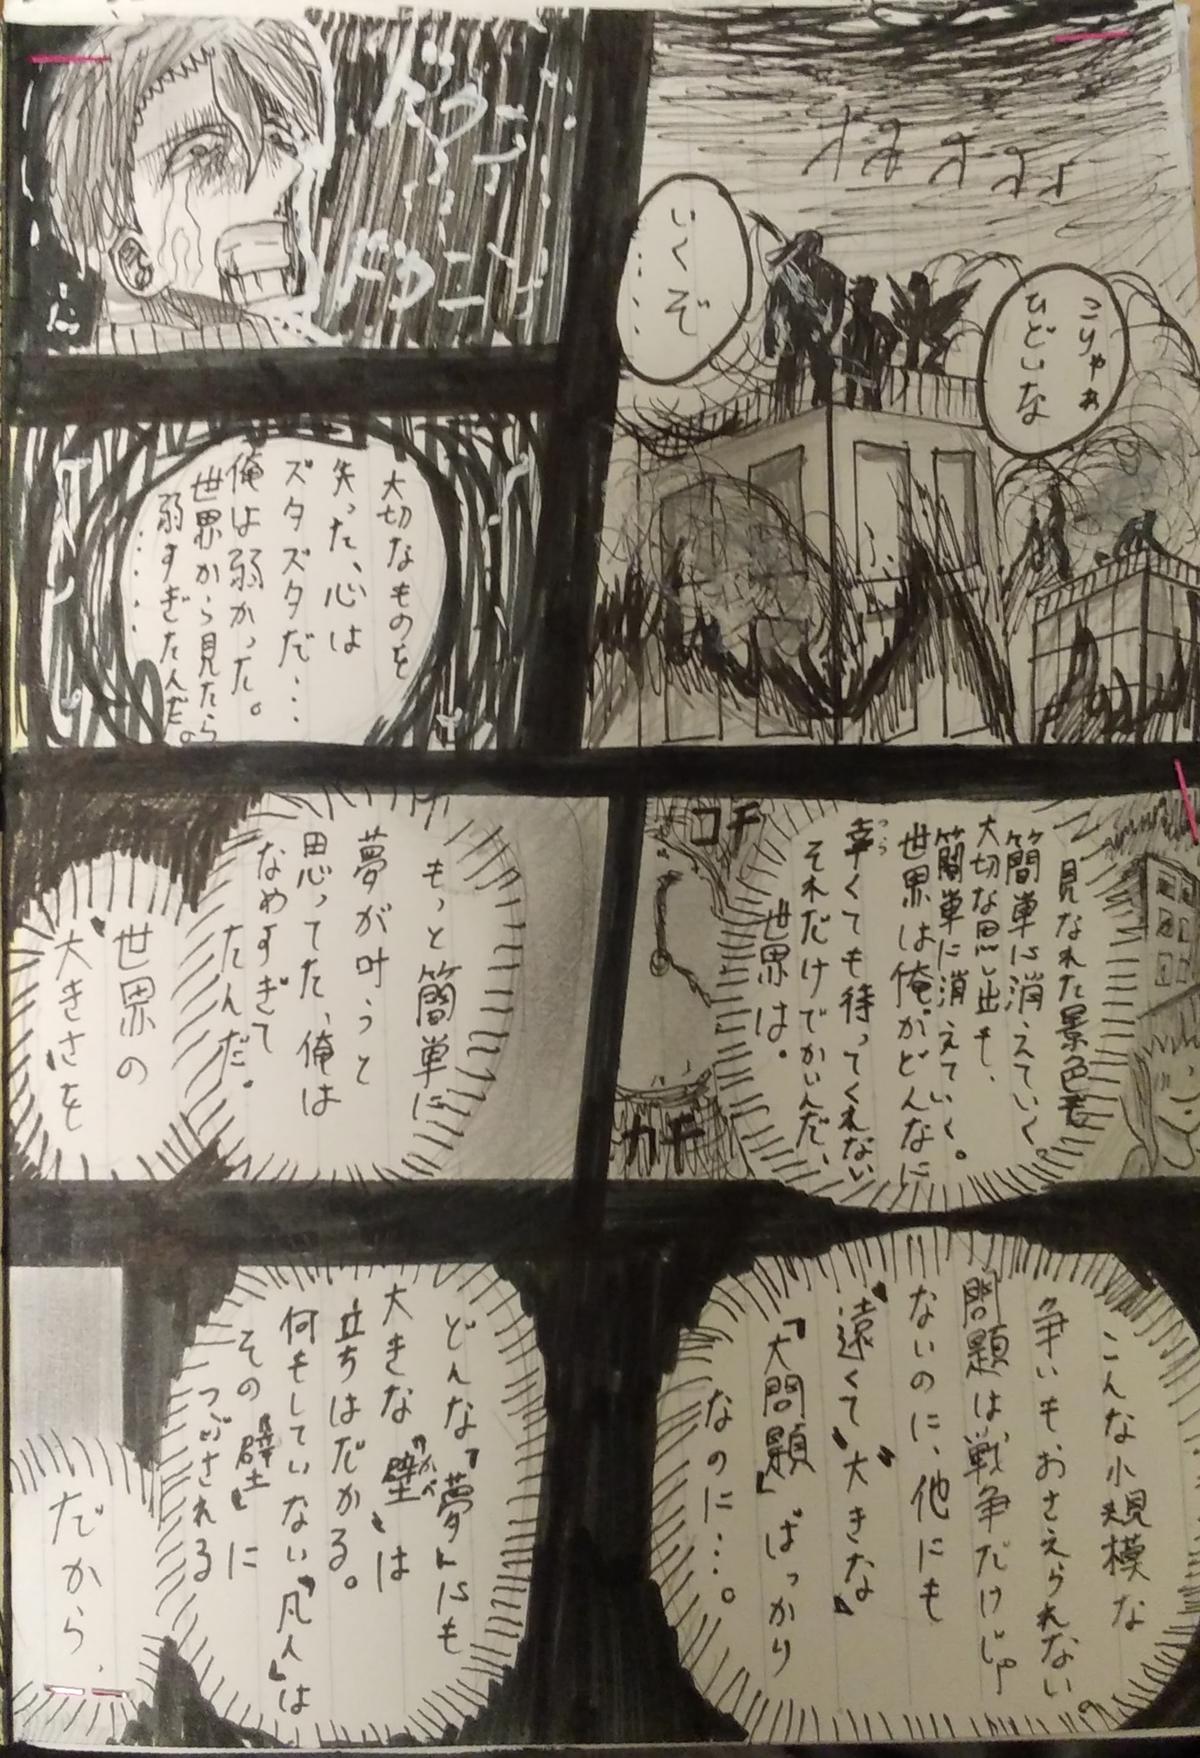 こりゃぁ
ひどいな
いくぞ
……
ドクン
ドクン
大切なものを
失った、心は
ズタズタだ…
俺は弱かった。
世界から見たら
弱すぎたんだ。
……
見なれた景色も
簡単に消えていく。
大切な思い出も、
簡単に消えていく。
世界は俺がどんなに
幸くても待ってくれない
つら
それだけでかいんだ、
世界は。
コチ
カチ
もっと簡単に
夢が叶うと
思ってた、俺は
なめすぎて
たんだ。
世界の
"大きさ"を
こんな小規模な
争いもおさえられない。
問題は、戦争だけじゃ
ないのに、他にも
"遠くて""大きな"
『大問題』ばっかり
なのに…。
どんな『夢』にも
大きな"壁"は
かべ
立ちはだかる。
何もしていない『凡人』は
その"壁"に
つぶされる
だから、